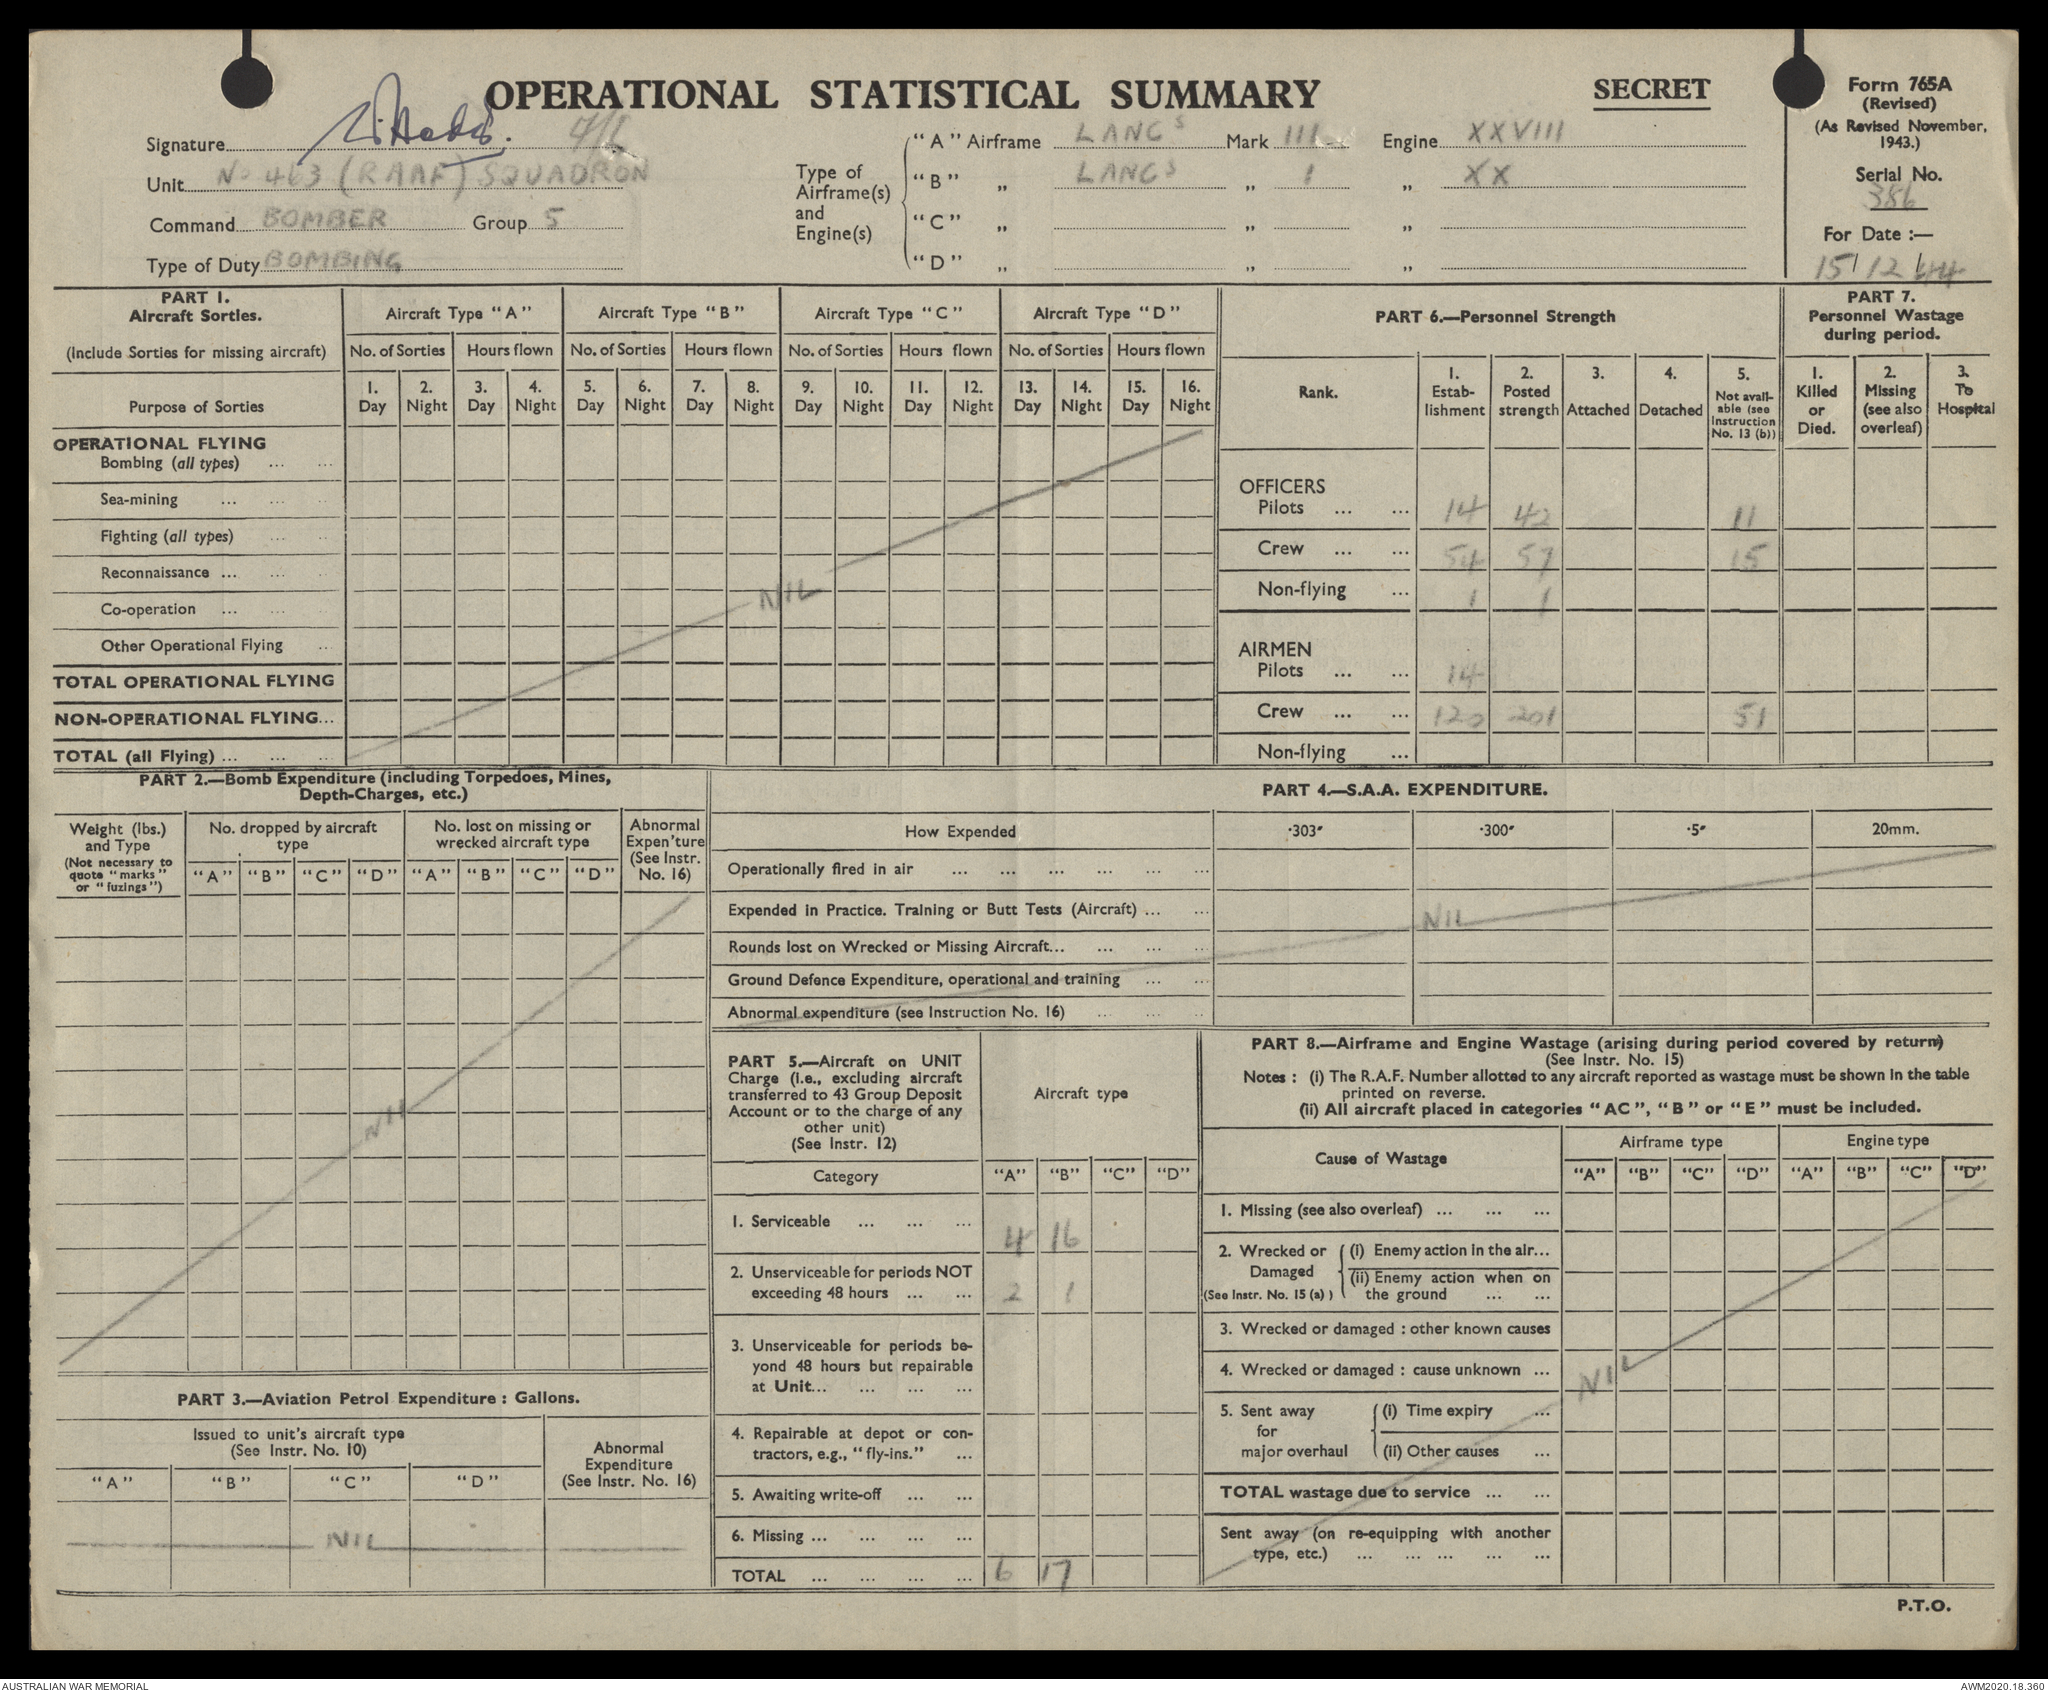 OPERATIONAL STATISTICAL SUMMARY
SECRET
Form 765A
(Revised)
(As Revised November, 1943.)
Serial No.
386
For Date :—
15/12/44
Signature F/L
Unit No 463 (RAAF) SQUADRON
Command BOMBER Group 5
Type of Duty BOMBING
Type of Airframe(s) and Engine(s)
"A" Airframe LANCS Mark III Engine XXVIII
"B" „ LANCS „ I „ XX
"C" „ „ „
"D" „ „ „
PART 1.
Aircraft Sorties.
(Include Sorties for missing aircraft)
Purpose of Sorties
Aircraft Type "A" Aircraft Type "B" Aircraft Type "C" Aircraft Type "D"
No. of Sorties Hours flown No. of Sorties Hours flown No. of Sorties Hours flown No. of Sorties Hours flown
1. Day 2. Night 3. Day 4. Night 5. Day 6. Night 7. Day 8. Night 9. Day 10. Night 11. Day 12. Night 13. Day 14. Night 15. Day 16. Night
OPERATIONAL FLYING
Bombing (all types) ... ...
Sea-mining ... ... ...
Fighting (all types) ... ...
Reconnaissance ... ... ...
Co-operation ... ... ...
Other Operational Flying ...
TOTAL OPERATIONAL FLYING
NON-OPERATIONAL FLYING...
TOTAL (all Flying) ... ... ...
NIL
PART 6.—Personnel Strength
Rank.
1. Estab-lishment
2. Posted strength
3. Attached
4. Detached
5. Not avail-able (see Instruction No. 13 (b))
OFFICERS
Pilots ... ... 14 42 11
Crew ... ... 54 57 15
Non-flying ... 1 1
AIRMEN
Pilots ... ... 14
Crew ... ... 120 201 51
Non-flying ...
PART 7.
Personnel Wastage during period.
1. Killed or Died.
2. Missing (see also overleaf)
3. To Hospital
PART 2.—Bomb Expenditure (including Torpedoes, Mines,
Depth-Charges, etc.)
Weight (lbs.) and Type
(Not necessary to quote "marks" or "fuzings")
No. dropped by aircraft type
No. lost on missing or wrecked aircraft type
Abnormal Expen'ture (See Instr. No. 16)
"A" "B" "C" "D" "A" "B" "C" "D"
NIL
PART 3.—Aviation Petrol Expenditure : Gallons.
Issued to unit's aircraft type
(See Instr. No. 10)
Abnormal Expenditure
(See Instr. No. 16)
"A" "B" "C" "D"
NIL
PART 4.—S.A.A. EXPENDITURE.
How Expended ·303" ·300" ·5" 20mm.
Operationally fired in air ... ... ... ... ... ...
Expended in Practice. Training or Butt Tests (Aircraft) ... ...
Rounds lost on Wrecked or Missing Aircraft... ... ... ...
Ground Defence Expenditure, operational and training ... ...
Abnormal expenditure (see Instruction No. 16) ... ... ...
NIL
PART 5.—Aircraft on UNIT
Charge (i.e., excluding aircraft
transferred to 43 Group Deposit
Account or to the charge of any
other unit)
(See Instr. 12)
Aircraft type
Category "A" "B" "C" "D"
1. Serviceable ... ... ... 4 16
2. Unserviceable for periods NOT
exceeding 48 hours ... ... 2 1
3. Unserviceable for periods be-
yond 48 hours but repairable
at Unit... ... ... ...
4. Repairable at depot or con-
tractors, e.g., "fly-ins." ...
5. Awaiting write-off ... ...
6. Missing ... ... ... ...
TOTAL ... ... ... ... 6 17
PART 8.—Airframe and Engine Wastage (arising during period covered by return)
(See Instr. No. 15)
Notes : (i) The R.A.F. Number allotted to any aircraft reported as wastage must be shown in the table
printed on reverse.
(ii) All aircraft placed in categories "AC", "B" or "E" must be included.
Cause of Wastage
Airframe type Engine type
"A" "B" "C" "D" "A" "B" "C" "D"
1. Missing (see also overleaf) ... ... ...
2. Wrecked or Damaged
(See Instr. No. 15 (a) )
(i) Enemy action in the air...
(ii) Enemy action when on
the ground ... ...
3. Wrecked or damaged : other known causes
4. Wrecked or damaged : cause unknown ...
5. Sent away for major overhaul
(i) Time expiry ...
(ii) Other causes ...
TOTAL wastage due to service ... ...
Sent away (on re-equipping with another
type, etc.) ... ... ... ... ...
NIL
P.T.O.
AUSTRALIAN WAR MEMORIAL
AWM2020.18.360